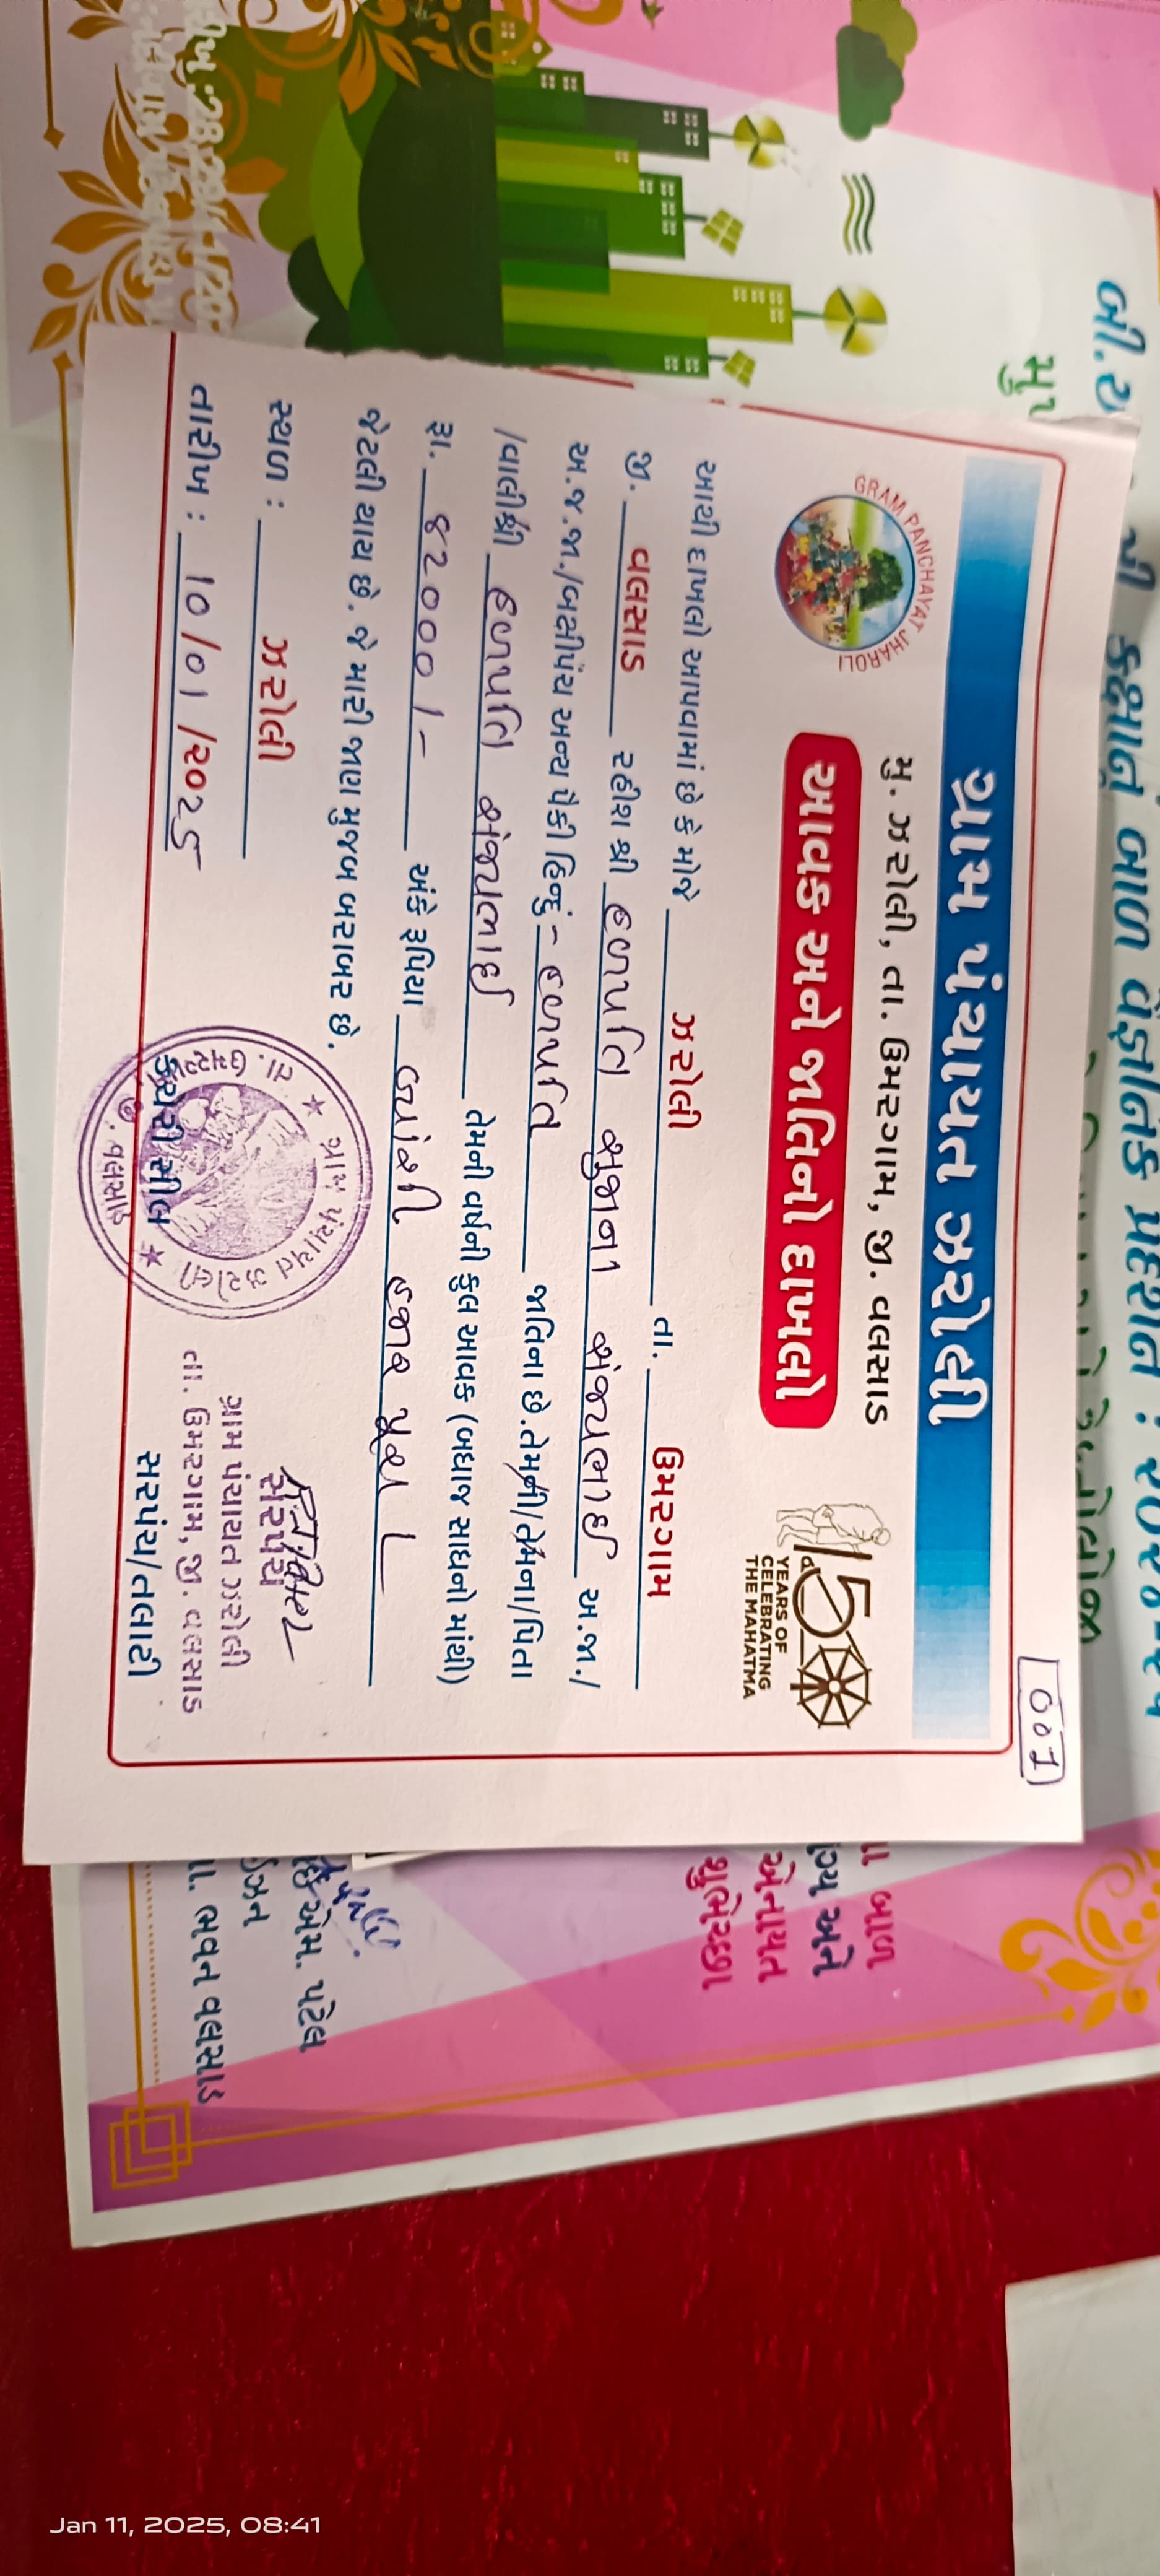 001
ગ્રામ પંચાયત ઝરોલી
મુ. ઝરોલી, તા. ઉમરગામ, જી. વલસાડ
GRAM PANCHAYAT JHAROLI
આવક અને જાતિનો દાખલો
150
YEARS OF
CELEBRATING
THE MAHATMA
આથી દાખલો આપવામાં છે કે મોજે ઝરોલી તા. ઉમરગામ
જી. વલસાડ રહીશ શ્રી હળપતિ સુજાના સંજયભાઈ અ.જા./
અ.જ.જા./બક્ષીપંચ અન્ય પૈકી હિન્દું - હળપતિ જાતિના છે.તેમની/તેમના/પિતા
/વાલીશ્રી હળપતિ સંજયભાઈ તેમની વર્ષની કુલ આવક (બધાજ સાધનો માંથી)
રૂા. ૪2000/- અંકે રૂપિયા હજાર પૂરા
જેટલી થાય છે. જે મારી જાણ મુજબ બરાબર છે.
સ્થળ : ઝરોલી
તારીખ : 10/01/૨૦25
ગ્રામ પંચાયત ઝરોલી
તા. ઉમરગામ
જી. વલસાડ
કચેરી સીલ
સરપંચ
ગ્રામ પંચાયત ઝરોલી
તા. ઉમરગામ, જી. વલસાડ
સરપંચ/તલાટી
બાળ વૈજ્ઞાનિક પ્રદર્શન :
બાળ
અને
એનાયત
એમ. પટેલ
ભવન વલસાડ
Jan 11, 2025, 08:41